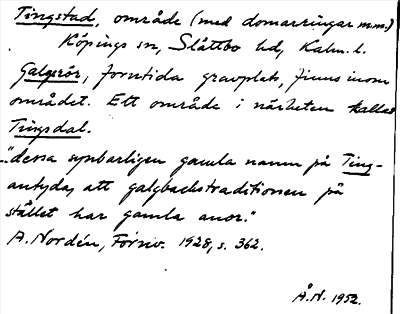 Tingstad, område (med domarringar m.m.)
Köpings sn, Slättbo hd, Kalm. l.
Galgerör, forntida gravplats, finns inom
området. Ett område i närheten kallas
Tingsdal.
"dessa synbarligen gamla namn på Ting-
antyda, att galgbackstraditionen på
stället har gamla anor."
A. Nordén, Fornv. 1928, s. 362.
Å.N. 1952.